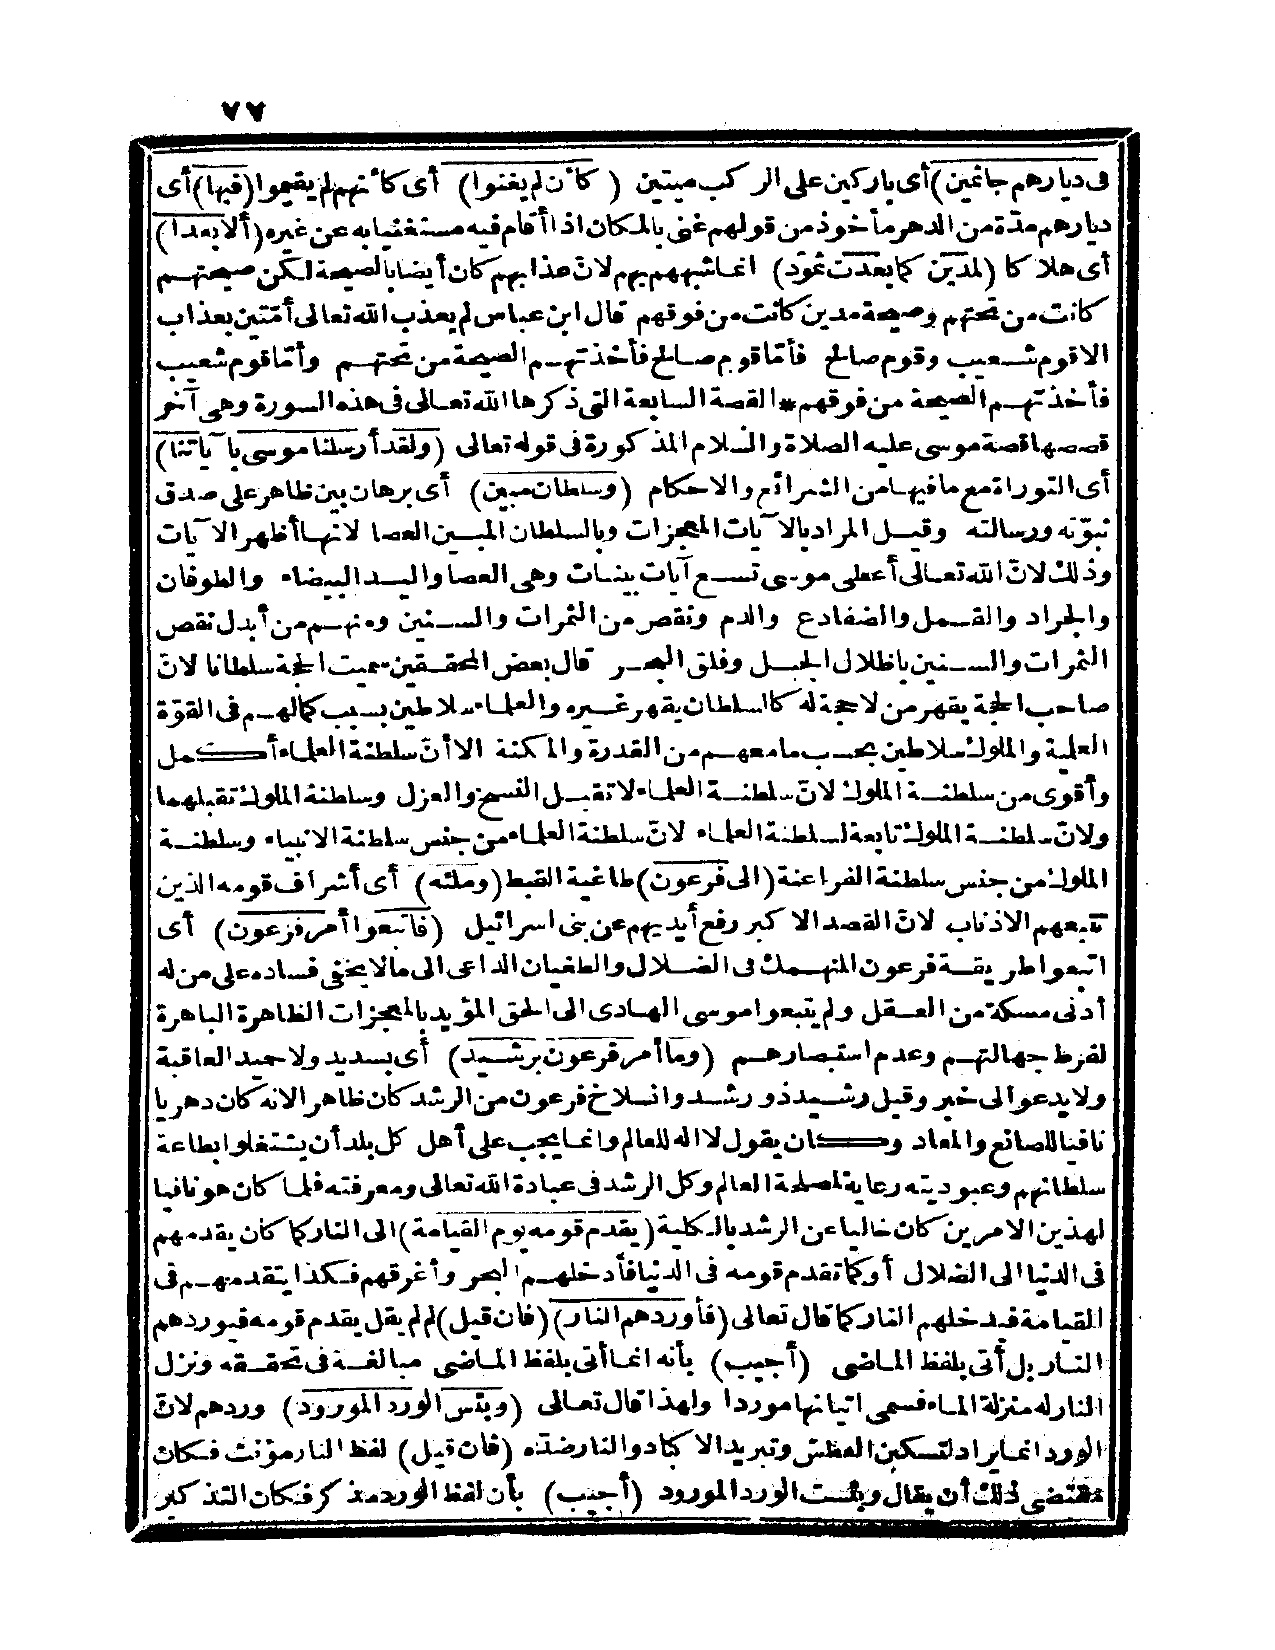 ٧٧
فى ديارهم جاثمين) أى باركين على الركب ميتين (كأن لم يغنوا) أى كأنهم لم يقيموا (فيها) أى
ديارهم مدّة من الدهر مأخوذ من قولهم غنى بالمكان اذا أقام فيه مستغنيا به عن غيره (ألا بعدا)
أى هلاكا (لمدين كما بعدت ثمود) انما شبههم بهم لانّ عذابهم كان أيضا بالصيحة لكن صيحتهم
كانت من تحتهم وصيحة مدين كانت من فوقهم قال ابن عباس لم يعذب الله تعالى أمّتين بعذاب
الا قوم شعيب وقوم صالح فأمّا قوم صالح فأخذتهم الصيحة من تحتهم وأمّا قوم شعيب
فأخذتهم الصيحة من فوقهم * القصة السابعة التى ذكرها الله تعالى فى هذه السورة وهى آخر
قصصها قصة موسى عليه الصلاة والسلام المذكورة فى قوله تعالى (ولقد أرسلنا موسى بآياتنا)
أى التوراة مع ما فيها من الشرائع والاحكام (وسلطان مبين) أى برهان بين ظاهر على صدق
نبوّته ورسالته وقيل المراد بالآيات المعجزات وبالسلطان المبين العصا لانها أظهر الآيات
وذلك لانّ الله تعالى أعطى موسى تسع آيات بينات وهى العصا واليد البيضاء والطوفان
والجراد والقمل والضفادع والدم ونقص من الثمرات والسنين ومنهم من أبدل نقص
الثمرات والسنين باظلال الجبل وفلق البحر قال بعض المحققين سميت الحجة سلطانا لانّ
صاحب الحجة يقهر من لا حجة له كالسلطان يقهر غيره والعلماء سلاطين بسبب كمالهم فى القوّة
العلمية والملوك سلاطين بحسب ما معهم من القدرة والمكنة الا أنّ سلطنة العلماء أكمل
وأقوى من سلطنة الملوك لانّ سلطنة العلماء لا تقبل النسخ والعزل وسلطنة الملوك تقبلهما
ولانّ سلطنة الملوك تابعة لسلطنة العلماء لانّ سلطنة العلماء من جنس سلطنة الانبياء وسلطنة
الملوك من جنس سلطنة الفراعنة (الى فرعون) طاغية القبط (وملئه) أى أشراف قومه الذين
تتبعهم الاذناب لانّ القصد الاكبر رفع أيديهم عن بنى اسرائيل (فاتبعوا أمر فرعون) أى
اتبعوا طريقة فرعون المنهمك فى الضلال والطغيان الداعى الى ما لا يخفى فساده على من له
أدنى مسكة من العقل ولم يتبعوا موسى الهادى الى الحق المؤيد بالمعجزات الظاهرة الباهرة
لفرط جهالتهم وعدم استبصارهم (وما أمر فرعون برشيد) أى بسديد ولا حميد العاقبة
ولا يدعو الى خير وقيل رشيد ذو رشد وانسلاخ فرعون من الرشد كان ظاهرا لانه كان دهريا
نافيا للصانع والمعاد وكان يقول لا اله للعالم وانما يجب على أهل كل بلد أن يشتغلوا بطاعة
سلطانهم وعبوديته رعاية لمصلحة العالم وكل الرشد فى عبادة الله تعالى ومعرفته فلما كان هو نافيا
لهذين الامرين كان خاليا عن الرشد بالكلية (يقدم قومه يوم القيامة) الى النار كما كان يقدمهم
فى الدنيا الى الضلال أو كما تقدم قومه فى الدنيا فأدخلهم البحر وأغرقهم فكذا يتقدمهم فى
القيامة فيدخلهم النار كما قال تعالى (فأوردهم النار) (فان قيل) لم لم يقل يقدم قومه فيوردهم
النار بل أتى بلفظ الماضى (أجيب) بأنه انما أتى بلفظ الماضى مبالغة فى تحققه ونزل
النار له منزلة الماء فسمى اتيانها موردا ولهذا قال تعالى (وبئس الورد المورود) وردهم لانّ
الورد انما يراد لتسكين العطش وتبريد الاكباد والنار ضدّه (فان قيل) لفظ النار مؤنث فكان
مقتضى ذلك أن يقال وبئست الورد المورود (أجيب) بأن لفظ الورد مذكر فكان التذكير